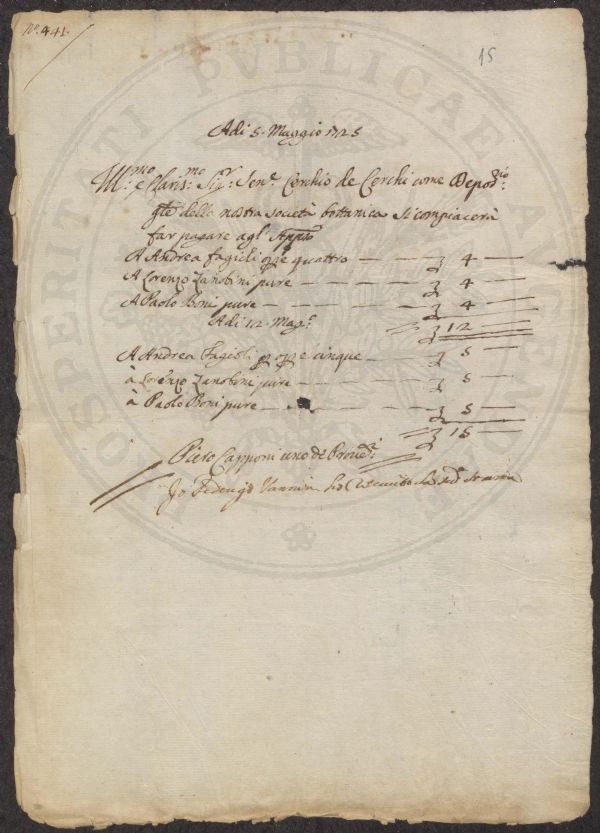 N.º 441.
15
PROSPERITATI PVBLICAE
Adi 5. Maggio 1725
Ill:mo e Claris:mo Sig:r Sen:e Cerchio de Cerchi come Depos:rio
della nostra società bottanica si compiacerà
far pagare agl'
A Andrea Fagioli quattro 4
A Lorenzo Zanobini pure 4
A Paolo Boni pure 4
Adi 12. Mag:o 12
A Andrea Fagioli p cinque 5
à Lorenzo Zanobini pure 5
à Paolo Boni pure 5
15
Piero Capponi uno de Proved:i
Io Federigo Vannini ho ricevuto la